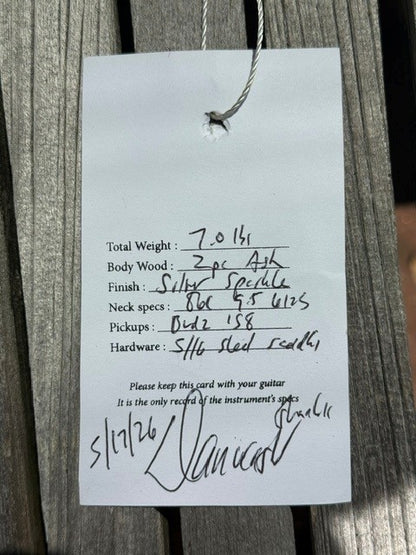 Total Weight : 7.0 lbs
Body Wood : 2pc Ash
Finish : Silver Sparkle
Neck specs : 9.5 6125
Pickups : '58
Hardware : steel
Please keep this card with your guitar
It is the only record of the instrument's specs
5/17/26